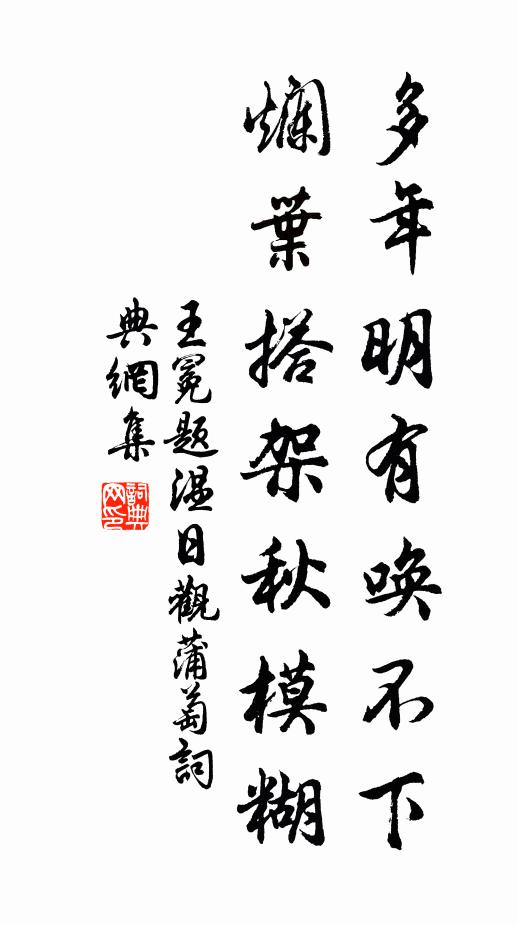 多年明有唤不下
爛葉搭架秋模糊
王冕题温日觀蒲萄詞
典網集
詞典
网印